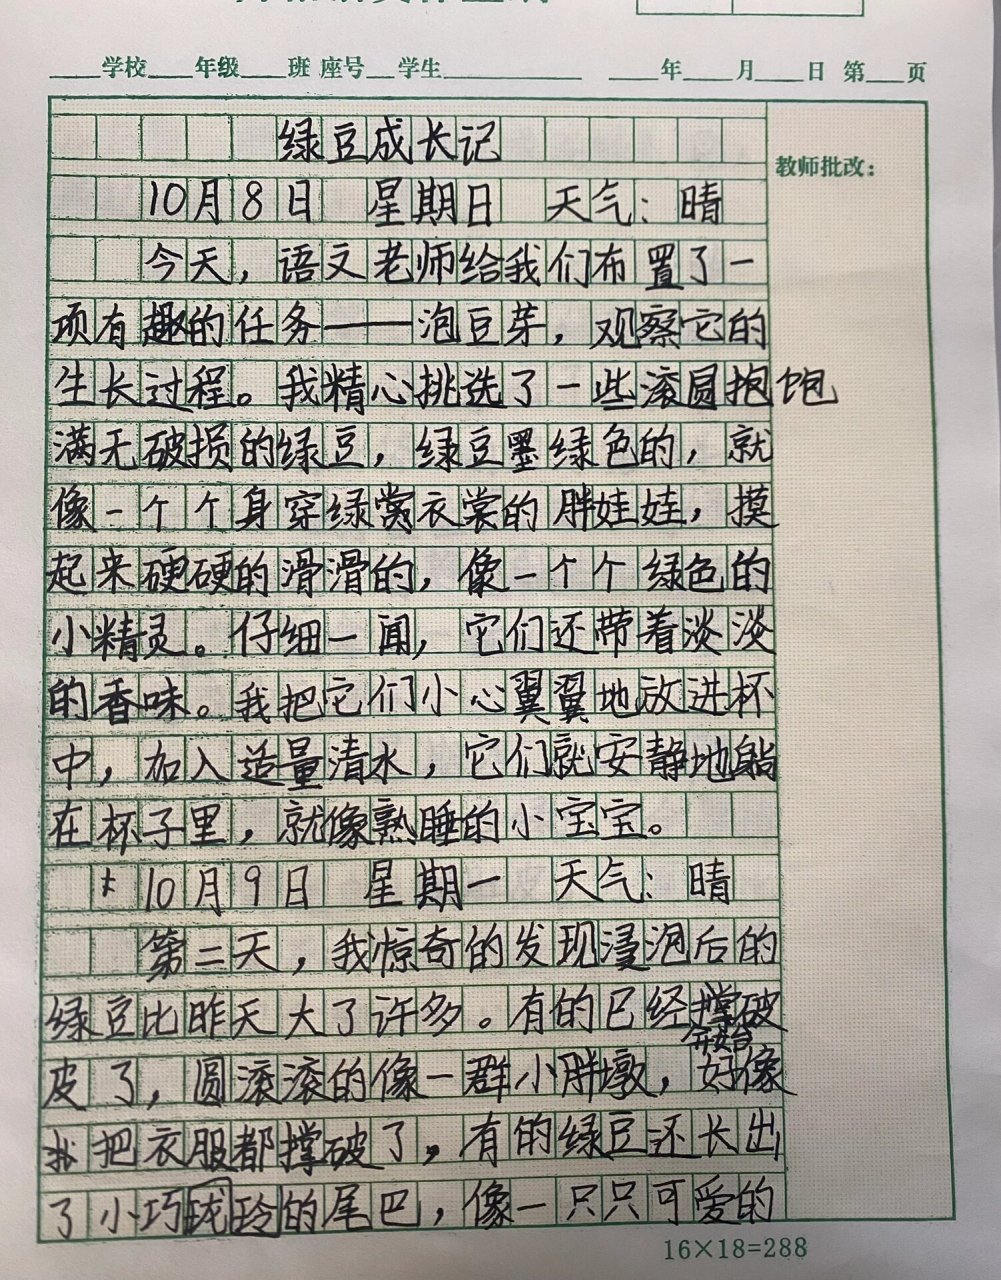 学校 年级 班 座号 学生 年 月 日 第 页
绿豆成长记
教师批改：
10月8日 星期日 天气：晴
今天，语文老师给我们布置了一
项有趣的任务——泡豆芽，观察它的
生长过程。我精心挑选了一些滚圆抱饱
满无破损的绿豆，绿豆墨绿色的，就
像一个个身穿绿赏衣裳的胖娃娃，摸
起来硬硬的滑滑的，像一个个绿色的
小精灵。仔细一闻，它们还带着淡淡
的香味。我把它们小心翼翼地放进杯
中，加入适量清水，它们就安静地躺
在杯子里，就像熟睡的小宝宝。
10月9日 星期一 天气：晴
第二天，我惊奇的发现浸泡后的
绿豆比昨天大了许多。有的已经撑破
开始
皮了，圆滚滚的像一群小胖墩，好像
把衣服都撑破了，有的绿豆还长出
了小巧珑玲的尾巴，像一只只可爱的
16×18=288